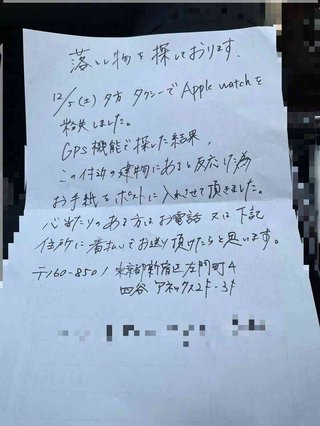 落とし物を探しております。
12/5(土)夕方 タクシーで Apple watchを
紛失しました。
GPS機能で探した結果、
この付近の建物にあると反応した為
お手紙をポストに入れさせて頂きました。
心当たりのある方はお電話 又は 下記
住所に着払いでお送り頂けたらと思います。
〒160-8501 東京都新宿区左門町4
四谷アネックス2F-3F